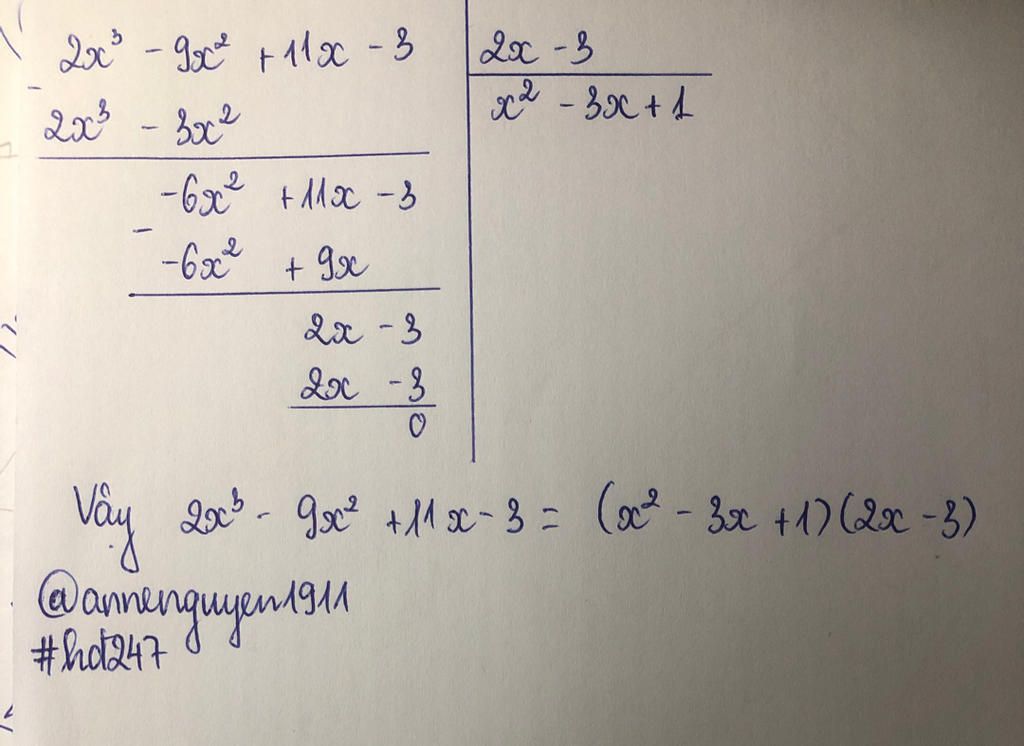 2x³ - 9x² + 11x - 3 2x - 3
- x² - 3x + 1
2x³ - 3x²
-6x² + 11x - 3
-
-6x² + 9x
2x - 3
2x - 3
0
Vậy 2x³ - 9x² + 11x - 3 = (x² - 3x + 1)(2x - 3)
@annenguyen1911
#hd247